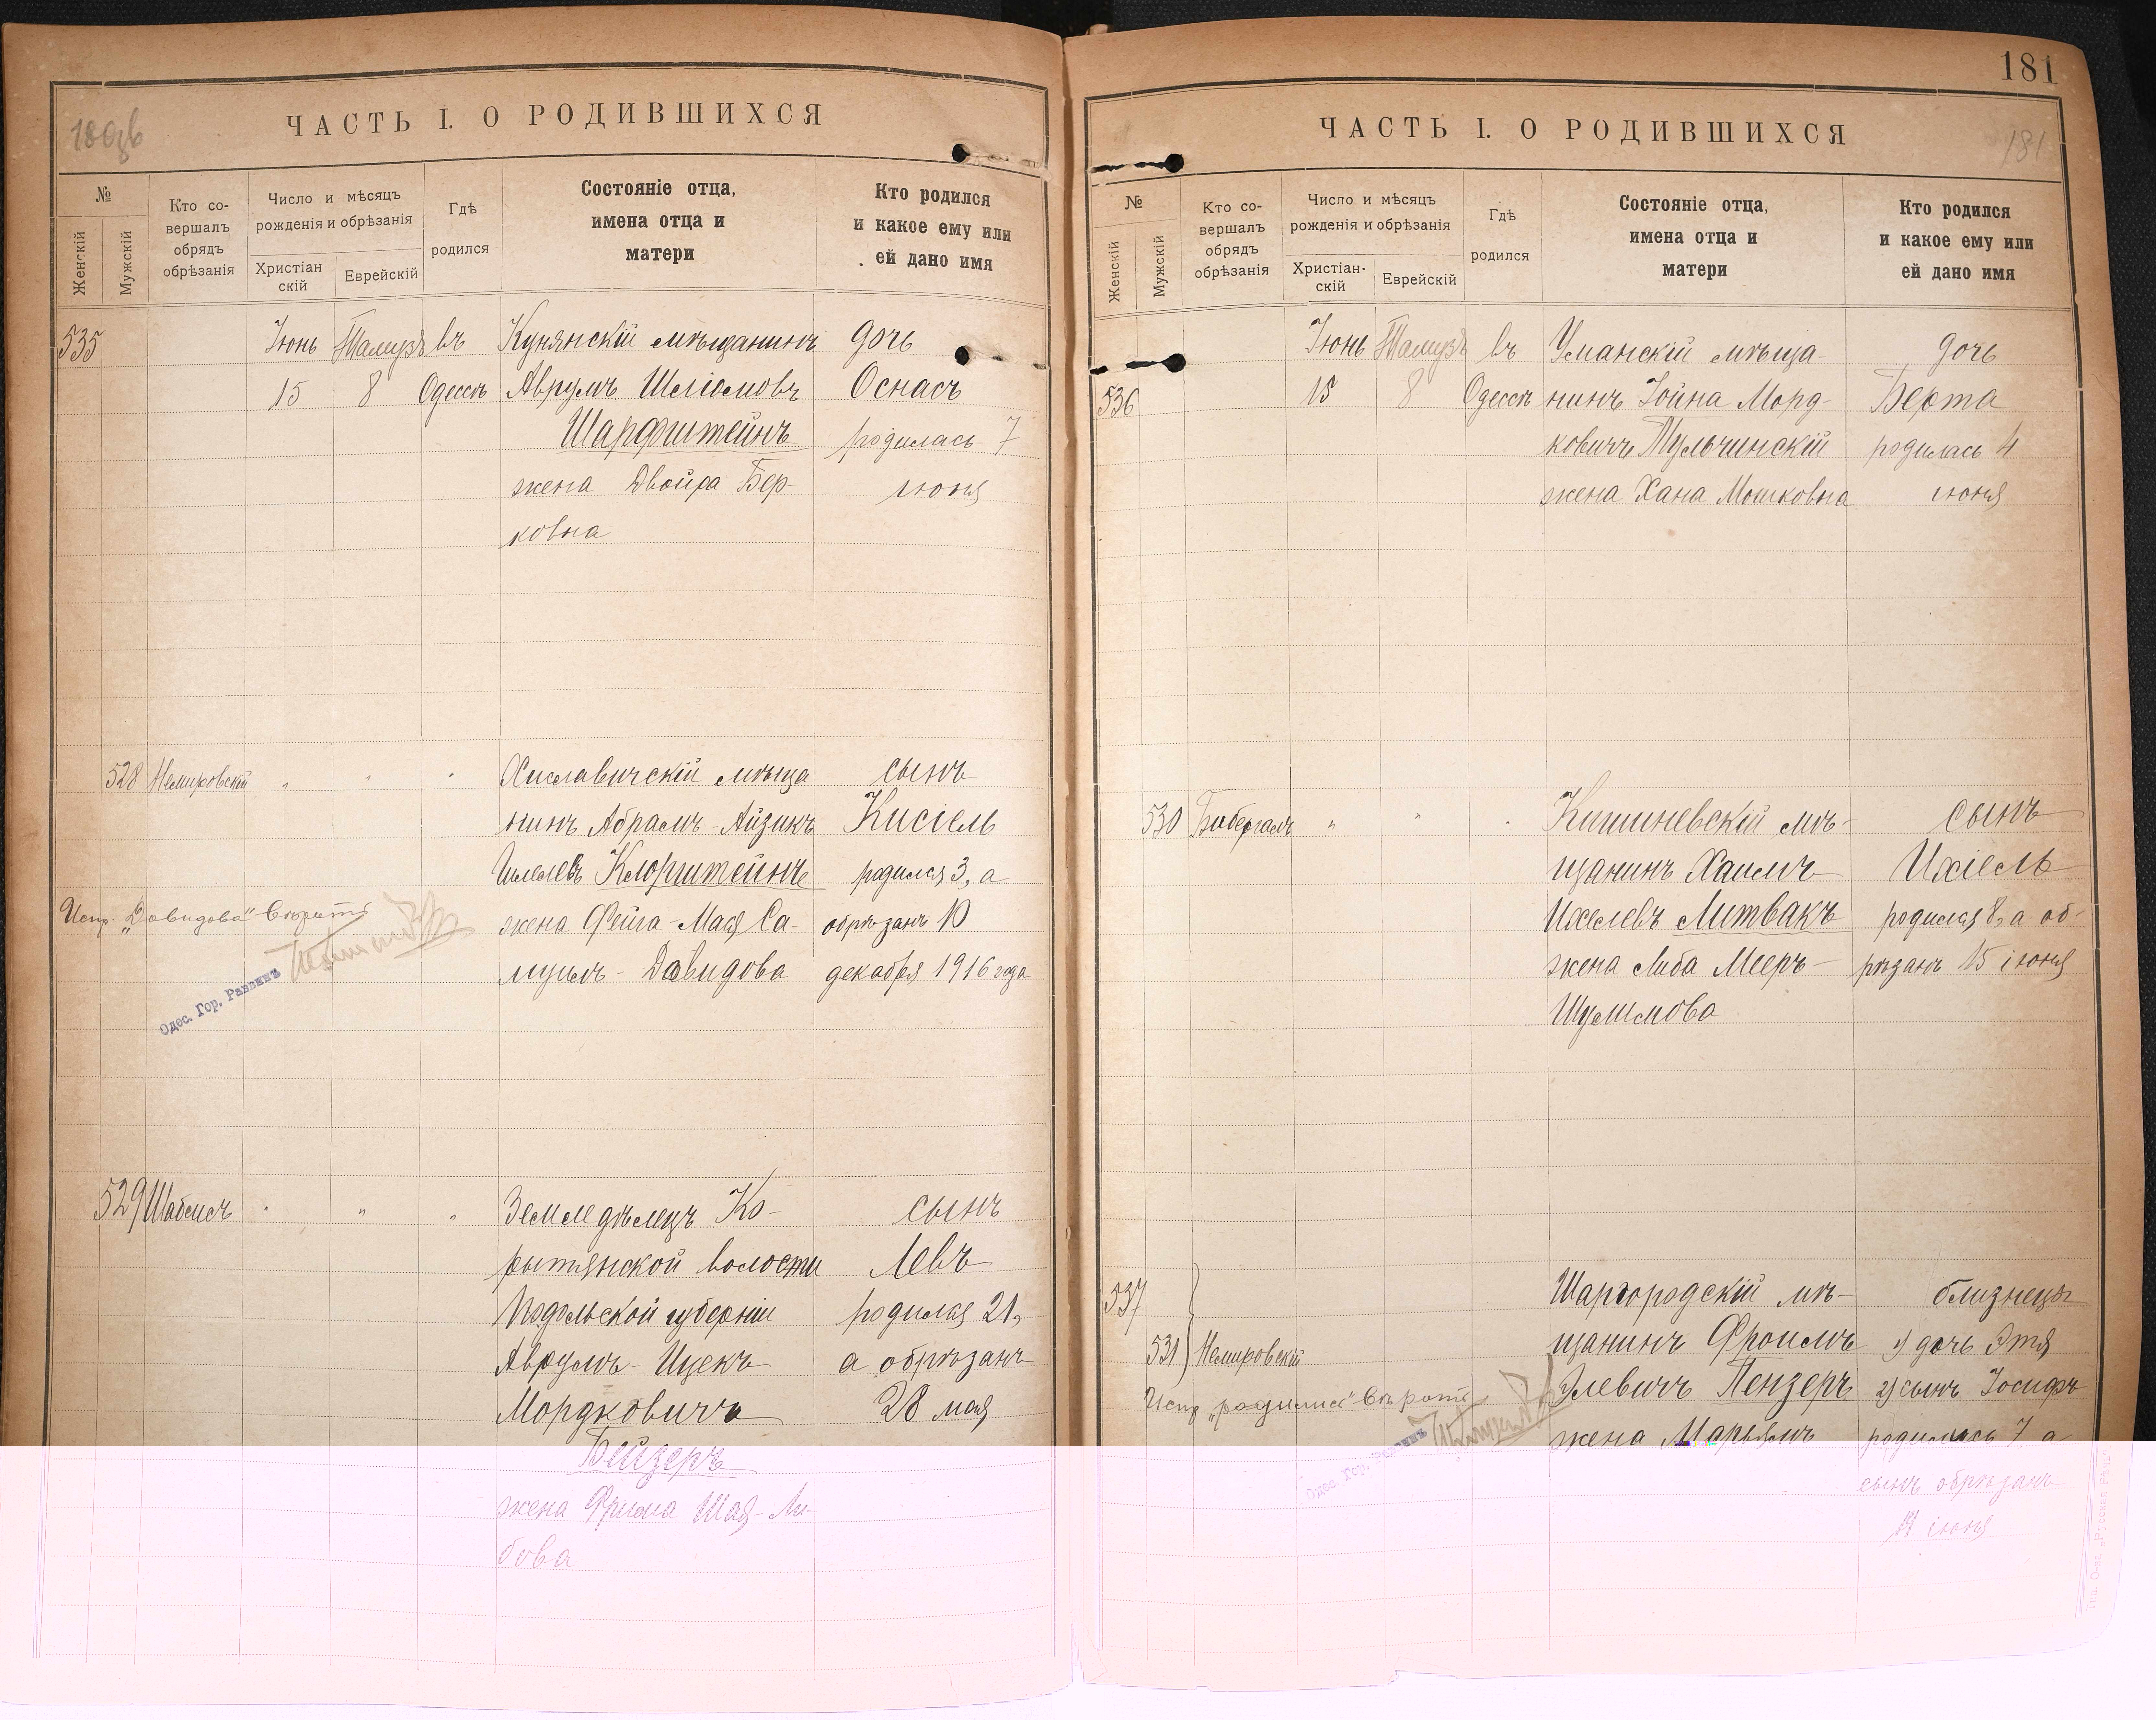 180об
ЧАСТЬ I. О РОДИВШИХСЯ
№
Женскій
Мужскій
Кто со-
вершалъ
обрядъ
обрѣзанія
Число и мѣсяцъ
рожденія и обрѣзанія
Христіан
скій
Еврейскій
Гдѣ
родился
Состояніе отца,
имена отца и
матери
Кто родился
и какое ему или
ей дано имя
535 Іюнь Тамузъ въ Кунянскій мѣщанинъ дочь
15 8 Одессѣ Аврумъ Шліомовъ Оснасъ
Шарфштейнъ родилась 7
жена Двойра Бер- іюня
ковна
528 Немировскій " " " Хиславичскій мѣща сынъ
нинъ Абрамъ-Айзикъ Кисіель
Клорштейнъ родился 3, а
Испр. „Давидова" вѣрить жена Фейга-Мася Са- обрѣзанъ 10
муилъ-Давидова декабря 1916 года
Одес. Гор. Раввинъ
529 " " " Земледѣлецъ Ко- сынъ
рытнянской волости Левъ
Подольской губерніи родился 21,
Аврумъ-Ицекъ а обрѣзанъ
Мордковичъ 28 мая
Бейдеръ
жена Фрима Шая-Ли-
бова
181
ЧАСТЬ I. О РОДИВШИХСЯ
181
№
Женскій
Мужскій
Кто со-
вершалъ
обрядъ
обрѣзанія
Число и мѣсяцъ
рожденія и обрѣзанія
Христіан-
скій
Еврейскій
Гдѣ
родился
Состояніе отца,
имена отца и
матери
Кто родился
и какое ему или
ей дано имя
Іюнь Тамузъ въ Уманскій мѣща- дочь
536 15 8 Одессѣ нинъ Іойна Морд- Берта
ковичъ Тульчинскій родилась 4
жена Хана Мошковна іюня
530 Бибергалъ " " " Кишиневскій мѣ- сынъ
щанинъ Хаимъ Ихіель
Ихелевъ Литвакъ родился 8, а об-
жена Либа Мееръ- рѣзанъ 15 іюня
Шулимова
537 Шаргородскій мѣ- близнецы
531 Немировскій щанинъ Фроимъ 1) дочь Этя
Элевичъ Пензеръ 2) сынъ Іосифъ
Испр. „родились" вѣрить
жена Марьямъ родились 7 а
Одес. Гор. Раввинъ
сынъ обрѣзанъ
14 іюня